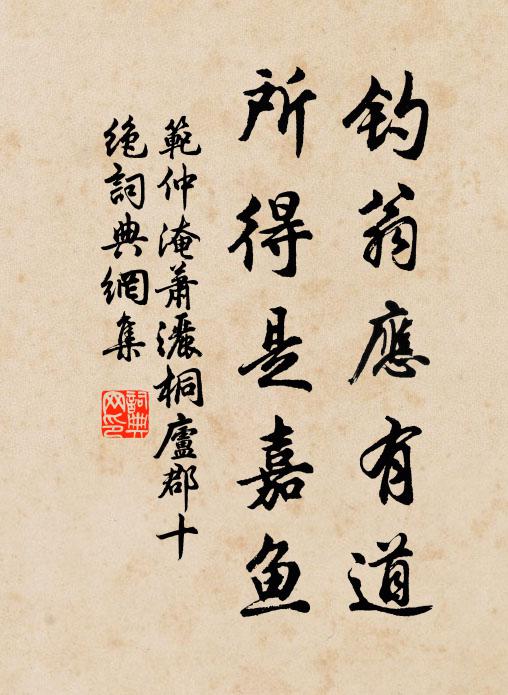 钓翁應有道
所得是嘉鱼
範仲淹蕭灑桐廬郡十
绝詞典網集
詞典
网印